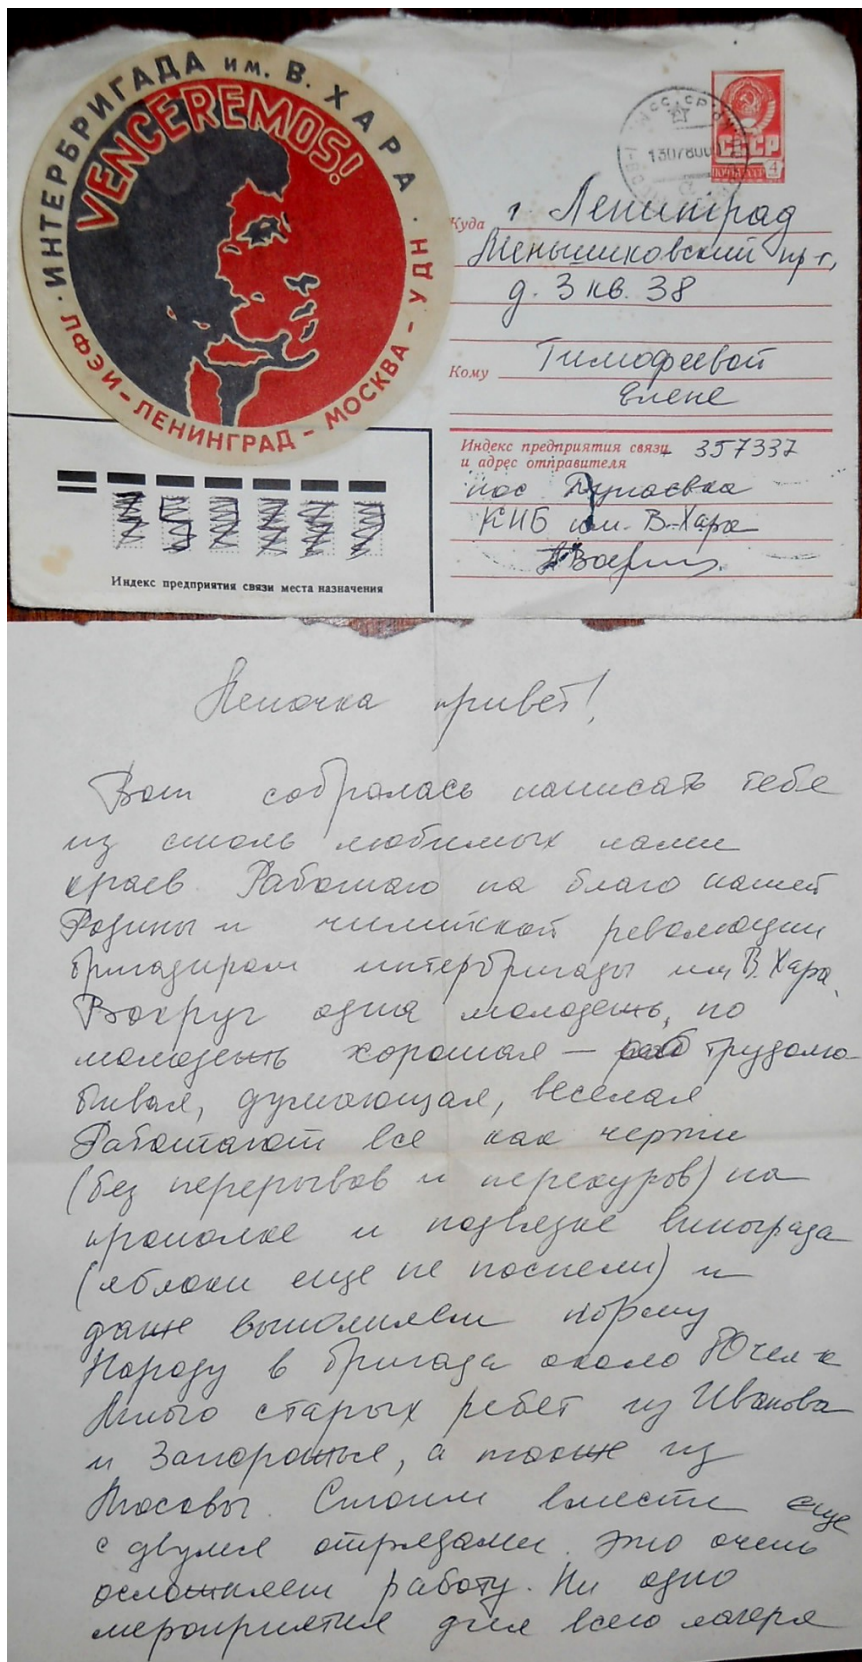 ИНТЕРБРИГАДА им. В. ХАРА
VENCEREMOS!
ЛФЭИ-ЛЕНИНГРАД-МОСКВА-УДН
СССР
4
130780
Куда
г Ленинград
Меньшиковский пр-т,
д. 3 кв. 38
Кому
Тимофеевой
Елене
Индекс предприятия связи
и адрес отправителя
357337
пос
КИБ им. В. Хара
Индекс предприятия связи места назначения
Леночка привет!
Вот собралась написать тебе
из столь любимых нами
краев. Работаю на благо нашей
Родины и чилийской революции
бригадиром интербригады им В. Хара.
Вокруг одна молодежь, но
молодежь хорошая — трудолю-
бивая, думающая, веселая
Работают все как черти
(без перерывов и перекуров) на
прополке и подвязке винограда
(яблоки еще не поспели) и
даже выполняем норму
Народу в бригаде около 80 чел-к
Много старых ребят из Иванова
и Запорожья, а также из
Москвы. Стоим вместе еще
с двумя отрядами. Это очень
осложняет работу. Ни одно
мероприятие для всего лагеря